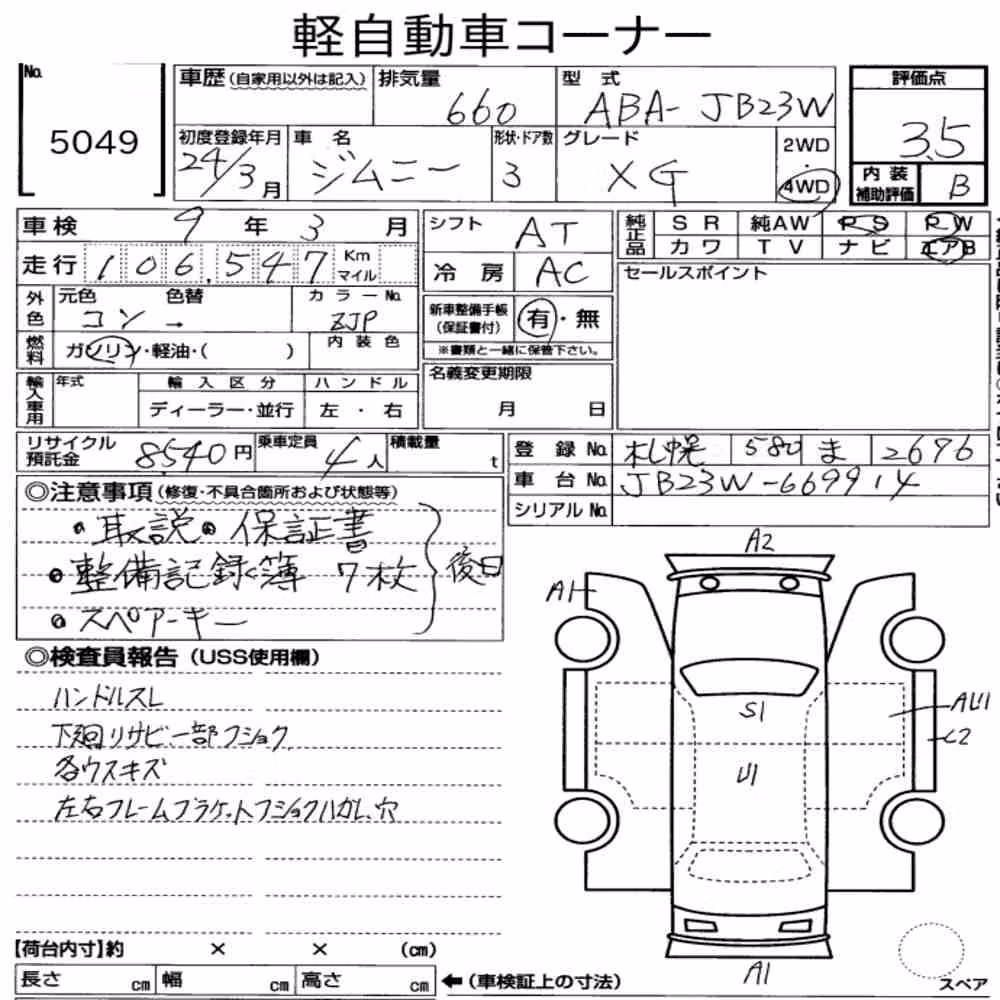 軽自動車コーナー
No.
5049
車歴(自家用以外は記入)
排気量 660
型式 ABA-JB23W
評価点 3.5
初度登録年月 24/3月
車名 ジムニー
形状・ドア数 3
グレード XG
2WD・4WD
内装補助評価 B
車検 9年3月
シフト AT
純正品 SR 純AW PS PW
カワ TV ナビ エアB
走行 106,547 Km マイル
冷房 AC
セールスポイント
外色 元色 コン 色替 → カラーNo. ZJP
新車整備手帳(保証書付) 有・無
※書類と一緒に保管下さい。
燃料 ガソリン・軽油・( )
内装色
輸入車用 年式 輸入区分 ハンドル
ディーラー・並行 左・右
名義変更期限
月 日
リサイクル預託金 8540円
乗車定員 4人
積載量 t
登録No. 札幌 580 ま 2676
車台No. JB23W-669914
シリアルNo.
◎注意事項(修復・不具合箇所および状態等)
・取説・保証書
・整備記録簿 7枚
・スペアーキー
後日
◎検査員報告(USS使用欄)
ハンドルスレ
下廻りサビ一部フショク
各ウスキズ
左右フレームブラケットフショクハガレ、穴
A2
A1
S1
AU1
C2
U1
A1
【荷台内寸】約 × × (cm)
長さ cm 幅 cm 高さ cm ←(車検証上の寸法)
スペア